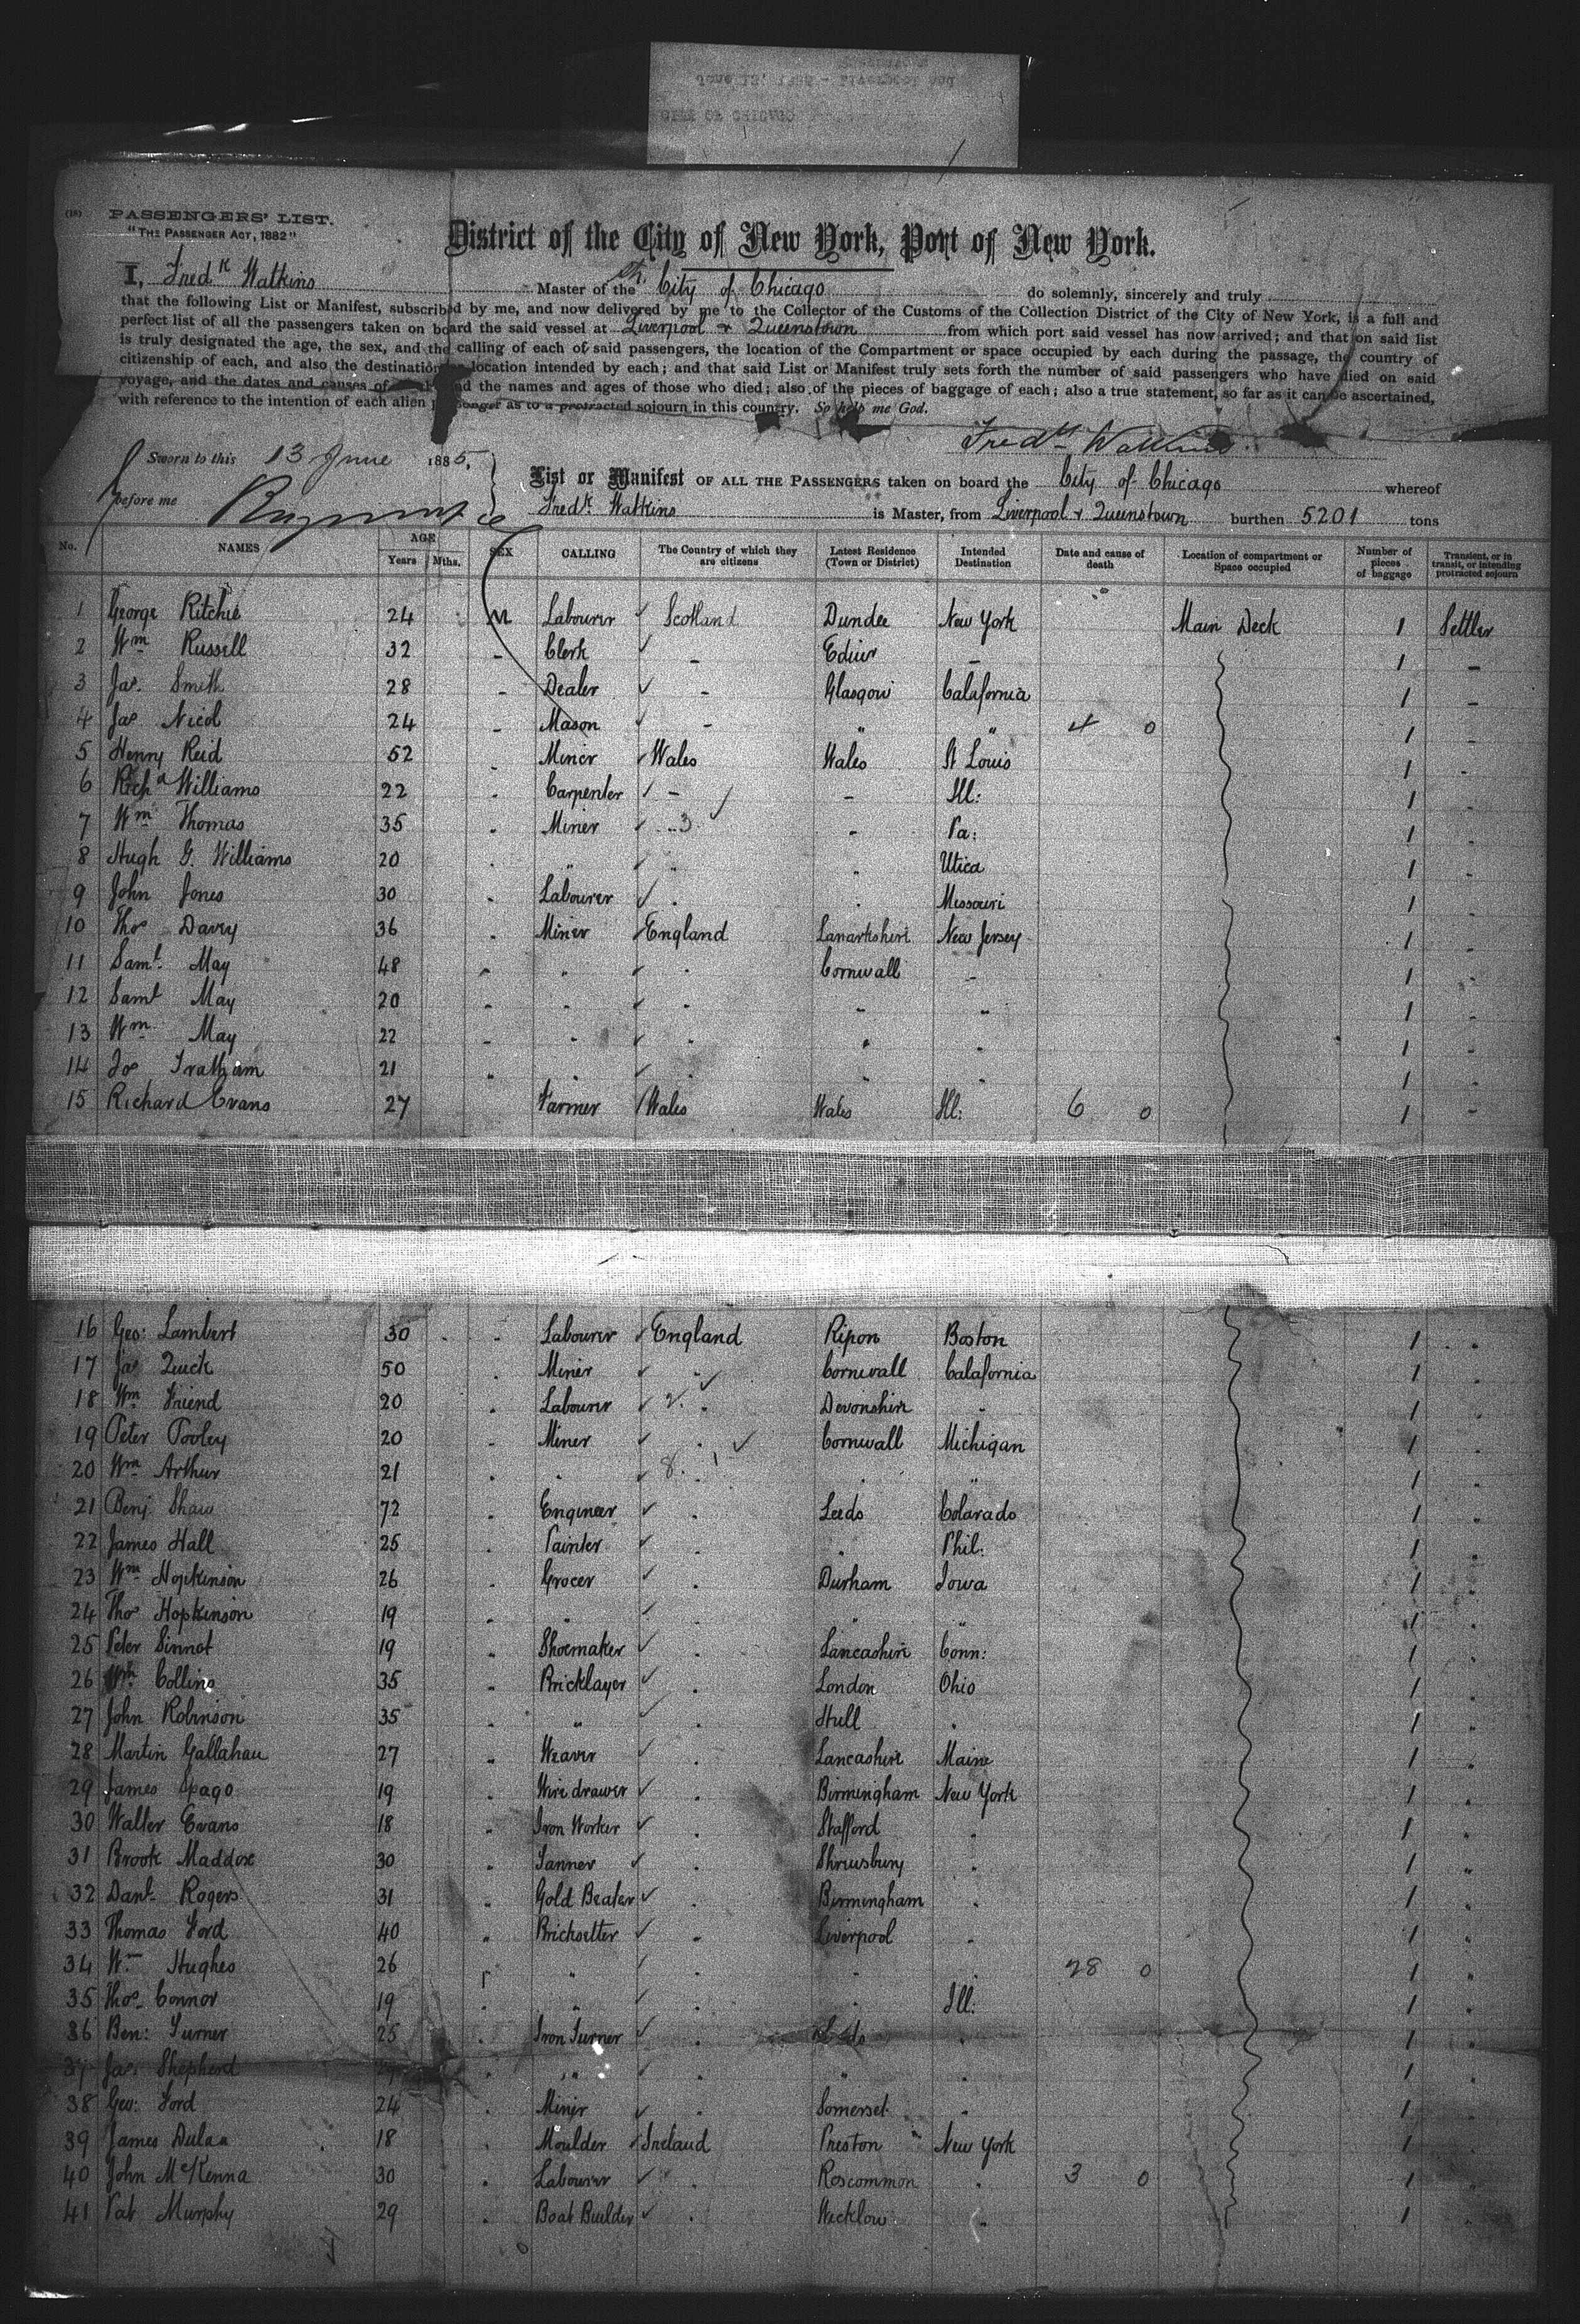 (18) PASSENGERS' LIST.
"THE PASSENGER ACT, 1882"
District of the City of New York, Port of New York.
I, Fredk Watkins Master of the City of Chicago do solemnly, sincerely and truly
that the following List or Manifest, subscribed by me, and now delivered by me to the Collector of the Customs of the Collection District of the City of New York, is a full and
perfect list of all the passengers taken on board the said vessel at Liverpool & Queenstown from which port said vessel has now arrived; and that on said list
is truly designated the age, the sex, and the calling of each of said passengers, the location of the Compartment or space occupied by each during the passage, the country of
citizenship of each, and also the destination or location intended by each; and that said List or Manifest truly sets forth the number of said passengers who have died on said
voyage, and the dates and causes of and the names and ages of those who died; also of the pieces of baggage of each; also a true statement, so far as it can be ascertained,
with reference to the intention of each alien passenger as to a protracted sojourn in this country. So help me God.
Fredk Watkins
Sworn to this 13 June 1885,
before me
List or Manifest OF ALL THE PASSENGERS taken on board the City of Chicago whereof
Fredk. Watkins is Master, from Liverpool & Queenstown burthen 5201 tons
No. NAMES AGE Years Mths. SEX CALLING The Country of which they are citizens Latest Residence (Town or District) Intended Destination Date and cause of death Location of compartment or Space occupied Number of pieces of baggage Transient, or in transit, or intending protracted sojourn
1 George Ritchie 24 M Labourer Scotland Dundee New York Main Deck 1 Settler
2 Wm Russell 32 - Clerk - Edinr - 1 -
3 Jas. Smith 28 - Dealer - Glasgow Calafornia 1 -
4 Jas Nicol 24 - Mason - " " 4 0 1 -
5 Henry Reid 52 - Miner Wales Wales St Louis 1 -
6 Richd Williams 22 " Carpenter - - Ill: 1 -
7 Wm Thomas 35 " Miner " 3 " Pa: 1 -
8 Hugh G. Williams 20 " " " " Utica 1 "
9 John Jones 30 " Labourer " " Missouri 1 "
10 Thos Davey 36 " Miner England Lanarkshire New Jersey 1 "
11 Saml. May 48 " " " Cornwall - 1 "
12 Saml May 20 " " " " " 1 "
13 Wm May 22 " " " " " 1 "
14 Jos Tratham 21 " " " " " 1 "
15 Richard Evans 27 Farmer Wales Wales Ill: 6 0 1 -
16 Geo: Lambert 30 " Labourer England Ripon Boston 1 "
17 Jas Quick 50 " Miner " Cornwall Calafornia 1 "
18 Wm Friend 20 " Labourer 2. " Devonshire " 1 "
19 Peter Pooley 20 " Miner " Cornwall Michigan 1 "
20 Wm Arthur 21 " " 8. 1 " " 1 "
21 Benj Shaw 72 " Engineer " Leeds Colarado 1 "
22 James Hall 25 " Painter " " Phil: 1 "
23 Wm Hopkinson 26 " Grocer " Durham Iowa 1 "
24 Thos Hopkinson 19 " " " " " 1 "
25 Peter Sinnot 19 " Shoemaker " Lancashire Conn: 1 "
26 Wm Collins 35 " Bricklayer " London Ohio 1 "
27 John Robinson 35 " " " Hull " 1 "
28 Martin Gallahau 27 " Weaver " Lancashire Maine 1 "
29 James Spago 19 " Wire drawer " Birmingham New York 1 "
30 Walter Evans 18 " Iron Worker " Stafford " 1 "
31 Brook Maddox 30 " Tanner " Shrewsbury " 1 "
32 Danl. Rogers 31 " Gold Beater " Birmingham " 1 "
33 Thomas Ford 40 " Bricksetter " Liverpool " 1 "
34 Wm Hughes 26 " " " " " 28 0 1 "
35 Thos. Connor 19 " " " " Ill: 1 "
36 Ben: Turner 25 " Iron Turner " Leeds " 1 "
37 Jas: Shepherd " " " " " 1 "
38 Geo: Ford 24 " Miner " Somerset " 1 "
39 James Dulan 18 " Moulder Ireland Preston New York 1 "
40 John McKenna 30 " Labourer " Roscommon " 3 0 1 "
41 Pat Murphy 29 " Boat Builder " Wicklow " 1 "